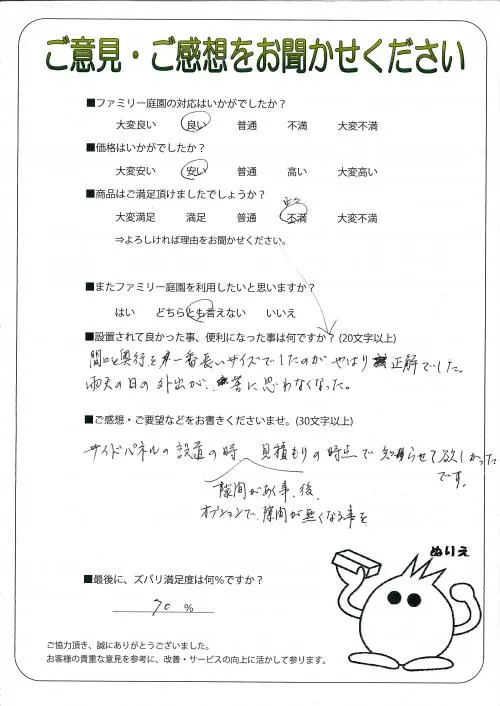 ご意見・ご感想をお聞かせください
■ファミリー庭園の対応はいかがでしたか？
大変良い 良い 普通 不満 大変不満
■価格はいかがでしたか？
大変安い 安い 普通 高い 大変高い
■商品はご満足頂けましたでしょうか？
大変満足 満足 普通 不満 大変不満
⇒よろしければ理由をお聞かせください。
■またファミリー庭園を利用したいと思いますか？
はい どちらとも言えない いいえ
■設置されて良かった事、便利になった事は何ですか？(20文字以上)
間口と奥行を一番長いサイズでしたのが やはり 正解でした。
雨天の日の外出が、苦に思わなくなった。
■ご感想・ご要望などをお書きくださいませ。(30文字以上)
サイドパネルの設置の時 見積もりの時点で知らせて欲しかった
です。
隙間があく事、後、
オプションで、隙間が無くなる事を
ぬりえ
■最後に、ズバリ満足度は何％ですか？
70 %
ご協力頂き、誠にありがとうございました。
お客様の貴重な意見を参考に、改善・サービスの向上に活かして参ります。